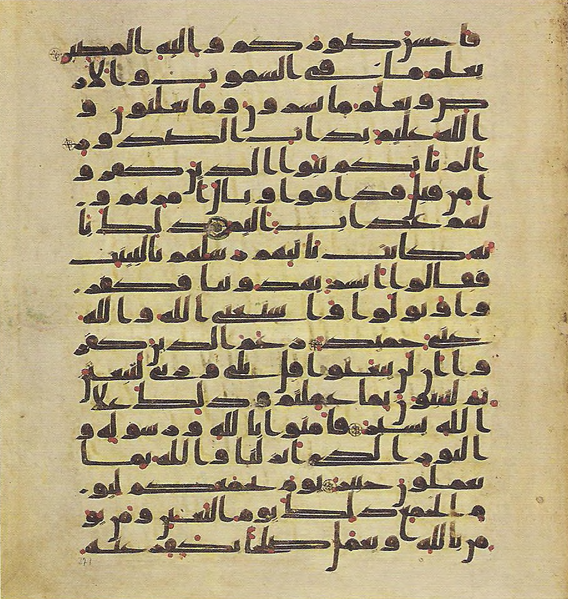 فاحسن صوركم واليه المصير
يعلم ما في السموت والار
ض ويعلم ما تسرون وما تعلنون و
الله عليم بذات الصدور
الم ياتكم نبوا الذين كفرو
ا من قبل فذاقوا وبال امرهم و
لهم عذاب اليم ذلك با
نه كانت تاتيهم رسلهم بالبينت
فقالوا ابشر يهدوننا فكفر
وا وتولوا واستغنى الله والله
غني حميد زعم الذين كفر
وا ان لن يبعثوا قل بلى وربي لتبعثن
ثم لتنبون بما عملتم وذلك على
الله يسير فامنوا بالله ورسوله و
النور الذي انزلنا والله بما
تعملون خبير يوم يجمعكم ليو
م الجمع ذلك يوم التغابن ومن يو
من بالله ويعمل صلحا يكفر عنه
271